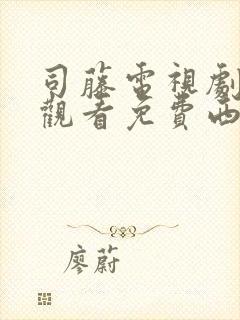 司藤電視劇
觀看免費西
廖蔚